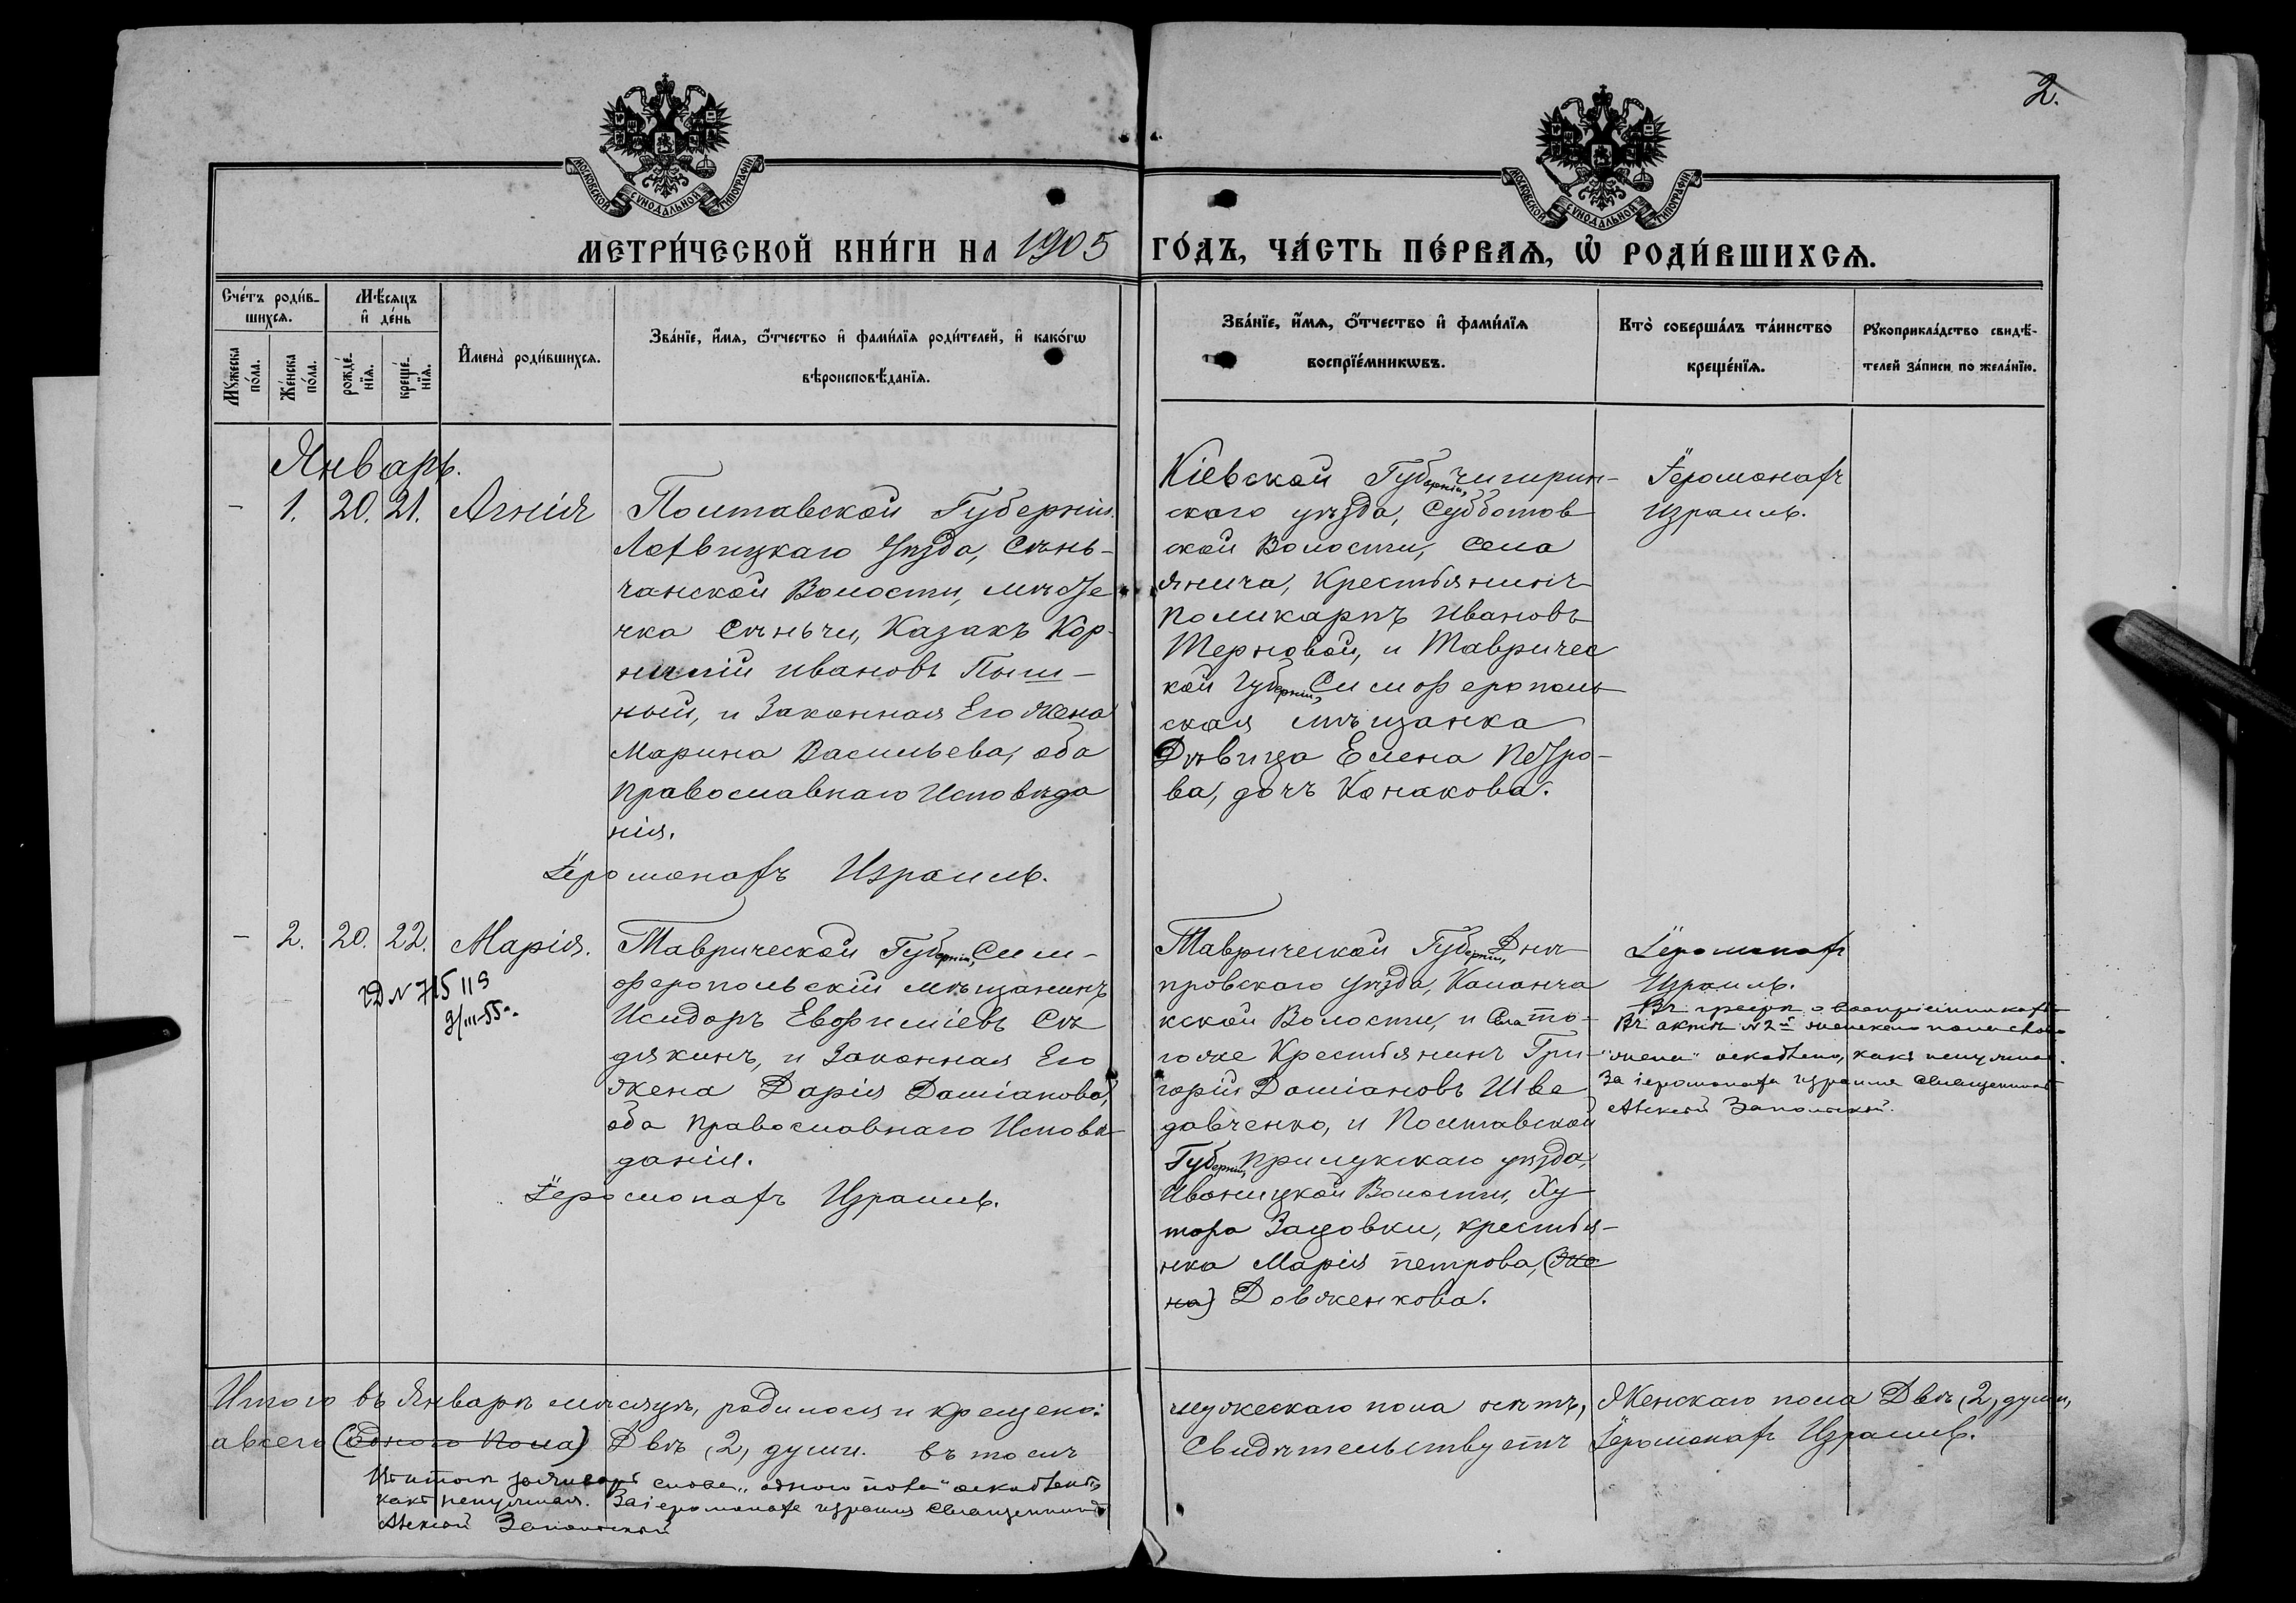 2.
МОСКОВСКОЙ СѴНОДАЛЬНОЙ ТИПОГРАФІИ
МОСКОВСКОЙ СѴНОДАЛЬНОЙ ТИПОГРАФІИ
МЕТРИ́ЧЕСКОЙ КНИ́ГИ НА 1905 ГО́ДЪ, ЧА́СТЬ ПЕ́РВАѦ, Ѿ РОДИ́ВШИХСѦ.
Сче́тъ роди́в-
шихсѧ.
Мѣ́сѧцъ
и де́нь
Мꙋ́жеска
по́ла.
Же́нска
по́ла.
рожде́-
нїѧ.
креще́-
нїѧ.
И҆мена̀ роди́вшихсѧ.
Зва́нїе, и҆́мѧ, ѻ҆́тчество и҆ фами́лїѧ роди́телей, и҆ како́гѡ
вѣроисповѣ́данїѧ.
Зва́нїе, и҆́мѧ, ѻ҆́тчество и҆ фами́лїѧ
воспрїе́мникѡвъ.
Кто̀ соверша́лъ та́инство
креще́нїѧ.
Рꙋкоприкла́дство свидѣ́-
телей за́писи по жела́нїю.
Январь.
- 1. 20. 21. Агнія
Полтавской Губерніи
Лохвицкаго Уѣзда, Сѣнь-
чанской Волости, мѣсте
чка Сѣньчи, Казакъ Кор-
нилій Ивановъ Пыш-
ный, и Законная Его жена
Марина Васильева, оба
Православнаго Исповѣда
нія.
Іеромонахъ Израиль.
Кіевской Губерніи, Чигирин-
скаго уѣзда, Субботов
ской Волости, Села
Янича, Крестьянинъ
Поликарпъ Ивановъ
Терновой, и Тавричес
кой Губерніи, Симферополь
ская мѣщанка
Дѣвица Елена Петро-
ва, дочь Конакова.
Іеромонахъ
Израиль.
- 2. 20. 22. Марія.
Таврической Губерніи, Сим-
феропольскій мѣщанинъ
Исидоръ Евфиміевъ Сѣ
дякинъ, и Законная Его
жена Дарія Даміанова,
оба Православнаго Исповѣ
данія.
Іеромонахъ Израиль.
N 715119
9/III-55г.
Таврической Губерніи, Днѣ
провскаго уѣзда, Каланча
кской Волости, и Села то-
гоже Крестьянинъ Гри-
горій Даміановъ Шве
давченко, и Полтавской
Губерніи, Прилукскаго уѣзда,
Иваницкой Волости, Ху
тора Зацовки, крестья-
нка Марія Петрова, (же
на) Довженкова.
Іеромонахъ
Израиль.
Въ графѣ о воспріемникахъ
Въ актѣ N 2й женскаго пола слово
"жена" оскоблено, какъ ненужное.
За іеромонаха Израиля Священникъ
Алексій Запольскій.
Итого въ Январѣ мѣсяцѣ, родилося и крещено:
а всего (Одного Пола) Двѣ, 2, души. въ томъ
мужескаго пола нѣтъ, Женскаго пола Двѣ, 2, души,
Свидѣтельствуетъ Іеромонахъ Израиль.
Въ итогѣ за январь слова "одного пола" оскоблены,
какъ ненужныя. За іеромонаха Израиля Священникъ
Алексій Запольскій